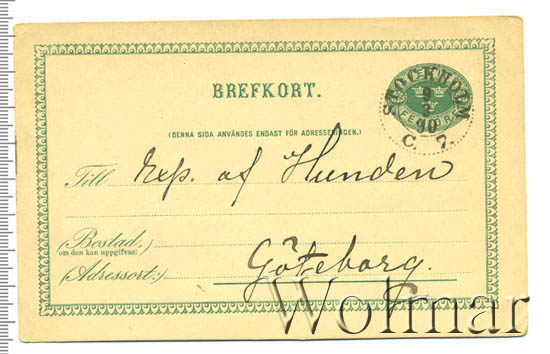 BREFKORT.
STOCKHOLM
9
2
90
C. 7.
FEM ÖRE
(DENNA SIDA ANVÄNDES ENDAST FÖR ADRESSERINGEN.)
Till Exp. af Hunden
(Bostad:)
om den kan uppgifvas:
(Adressort:) Göteborg.
Wolmar